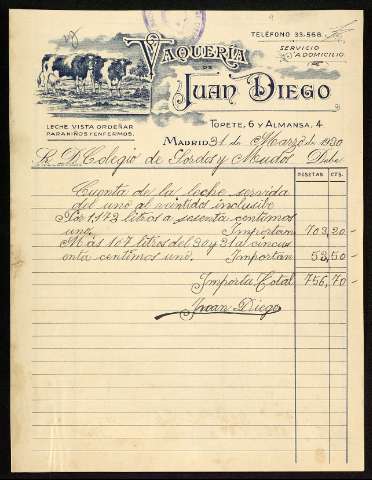 TELÉFONO 33.568
SERVICIO
A DOMICILIO
VAQUERÍA
DE
JUAN DIEGO
LECHE VISTA ORDEÑAR
PARA NIÑOS Y ENFERMOS.
TOPETE, 6 Y ALMANSA, 4
MADRID 31 de Marzo de 1930
Sr. D. Colegio de Sordos y Mudos Debe
PESETAS CTS.
Cuenta de la leche servida
del uno al veintidos inclusibe
Por 1,172 litros a sesenta centimos
uno. Importan 703,20-
Más 107 litros del 30 y 31 a cincu
enta centimos uno. Importan 53,50-
Importa Total 756,70-
Juan Diego